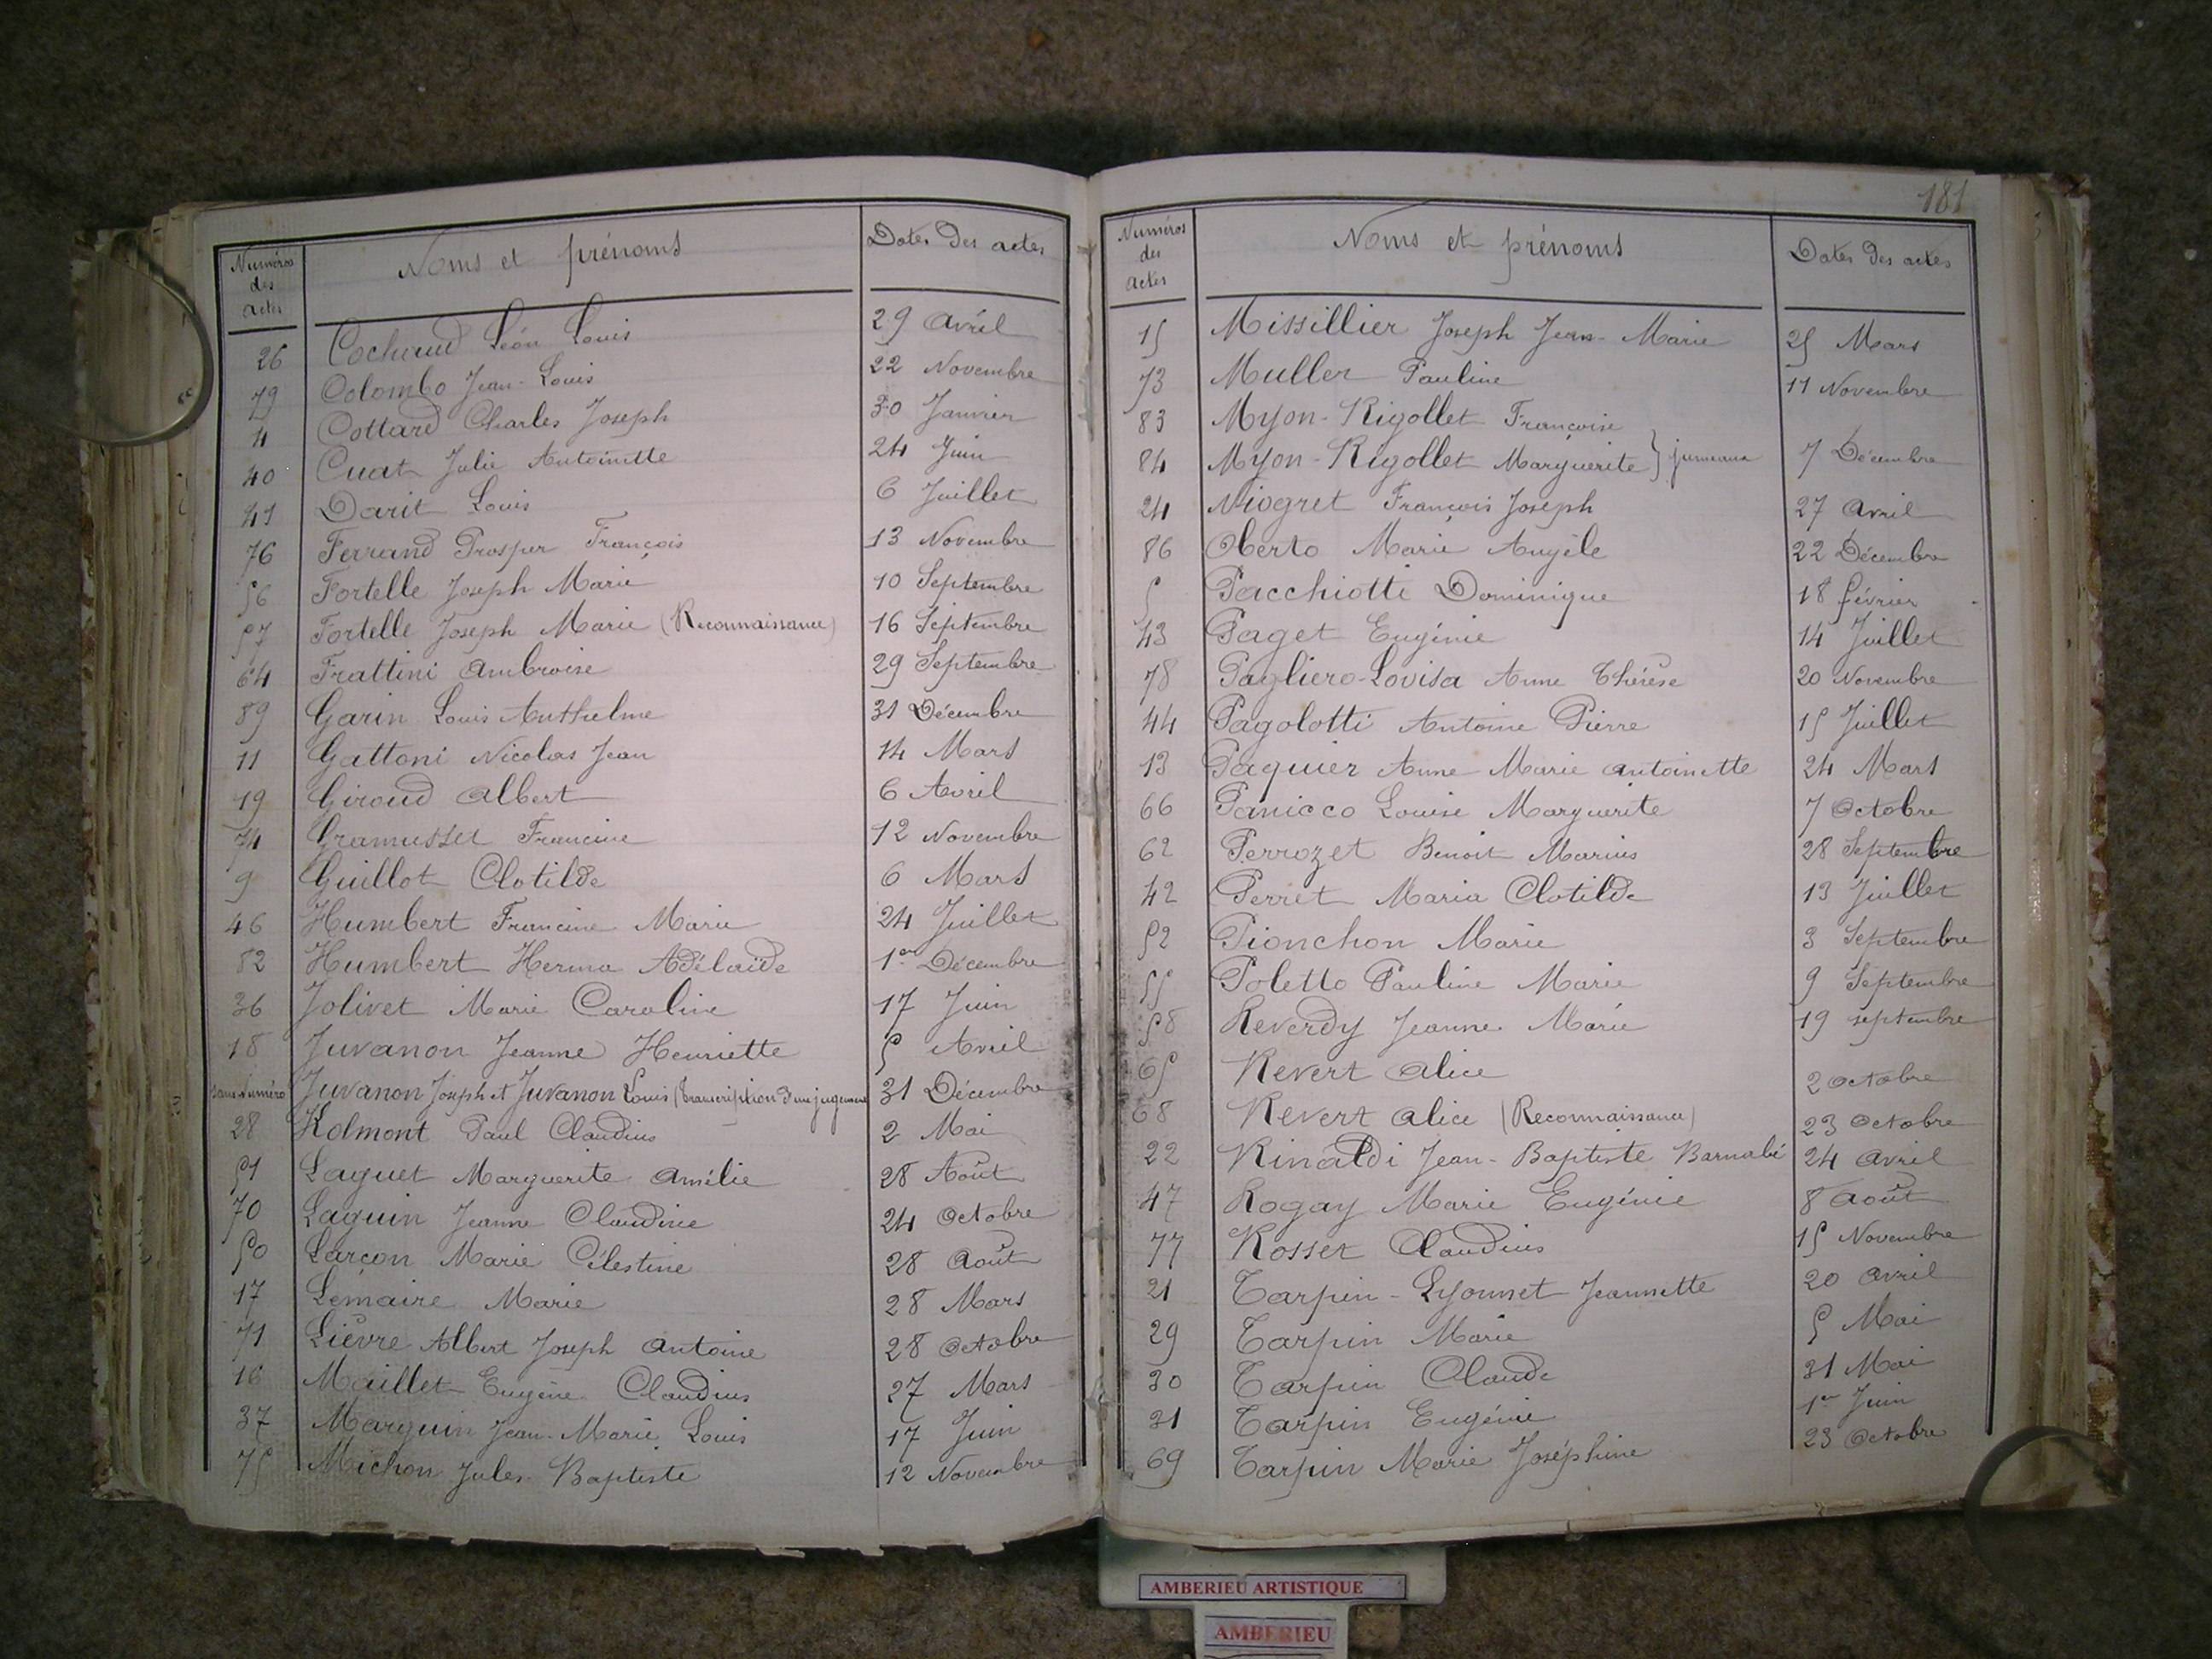 Numéros des actes Noms et prénoms Dates des actes
26 Cochaud Léon Louis 29 Avril
79 Colombo Jean-Louis 22 Novembre
4 Cottard Charles Joseph 30 Janvier
40 Cuat Julie Antoinette 24 Juin
41 Darit Louis 6 Juillet
76 Ferrand Prosper François 13 Novembre
56 Fortelle Joseph Marie 10 Septembre
57 Fortelle Joseph Marie (Reconnaissance) 16 Septembre
64 Frattini Ambroise 29 Septembre
89 Garin Louis Anthelme 31 Décembre
11 Gattoni Nicolas Jean 14 Mars
19 Giroud Albert 6 Avril
74 Gramusset Francine 12 Novembre
9 Guillot Clotilde 6 Mars
46 Humbert Francine Marie 24 Juillet
82 Humbert Herma Adélaïde 1er Décembre
36 Jolivet Marie Caroline 17 Juin
18 Juvanon Jeanne Henriette 5 Avril
sans numéro Juvanon Joseph et Juvanon Louis (transcription d'un jugement 31 Décembre
28 Kolmont Paul Claudius 2 Mai
51 Laguet Marguerite Amélie 28 Août
70 Laguin Jeanne Claudine 24 Octobre
50 Larçon Marie Célestine 28 Août
17 Lemaire Marie 28 Mars
71 Lièvre Albert Joseph Antoine 28 Octobre
16 Maillet Eugène Claudius 27 Mars
37 Marguin Jean-Marie Louis 17 Juin
75 Michon Jules Baptiste 12 Novembre
181
Numéros des actes Noms et prénoms Dates des actes
15 Missillier Joseph Jean-Marie 25 Mars
73 Muller Pauline 11 Novembre
83 Myon-Rigollet Françoise
84 Myon-Rigollet Marguerite } jumeaux 7 Décembre
24 Niogret François Joseph 27 Avril
86 Oberto Marie Angèle 22 Décembre
5 Pacchiotti Dominique 18 février
43 Paget Eugénie 14 Juillet
78 Pagliero-Lovisa Anne Thérèse 20 Novembre
44 Pagolotti Antoine Pierre 15 Juillet
13 Paquier Anne Marie Antoinette 24 Mars
66 Panicco Louise Marguerite 7 Octobre
62 Perrozet Benoit Marius 28 Septembre
42 Perret Maria Clotilde 13 Juillet
52 Pionchon Marie 3 Septembre
55 Poletto Pauline Marie 9 Septembre
58 Reverdy Jeanne Marie 19 septembre
65 Revert Alice 2 Octobre
68 Revert Alice (Reconnaissance) 23 Octobre
22 Rinaldi Jean-Baptiste Barnabé 24 Avril
47 Rogay Marie Eugénie 8 Août
77 Rosset Claudius 15 Novembre
21 Tarpin-Lyonnet Jeannette 20 Avril
29 Tarpin Marie 5 Mai
30 Tarpin Claude 31 Mai
31 Tarpin Eugénie 1er Juin
69 Tarpin Marie Joséphine 23 Octobre
AMBERIEU ARTISTIQUE
AMBERIEU